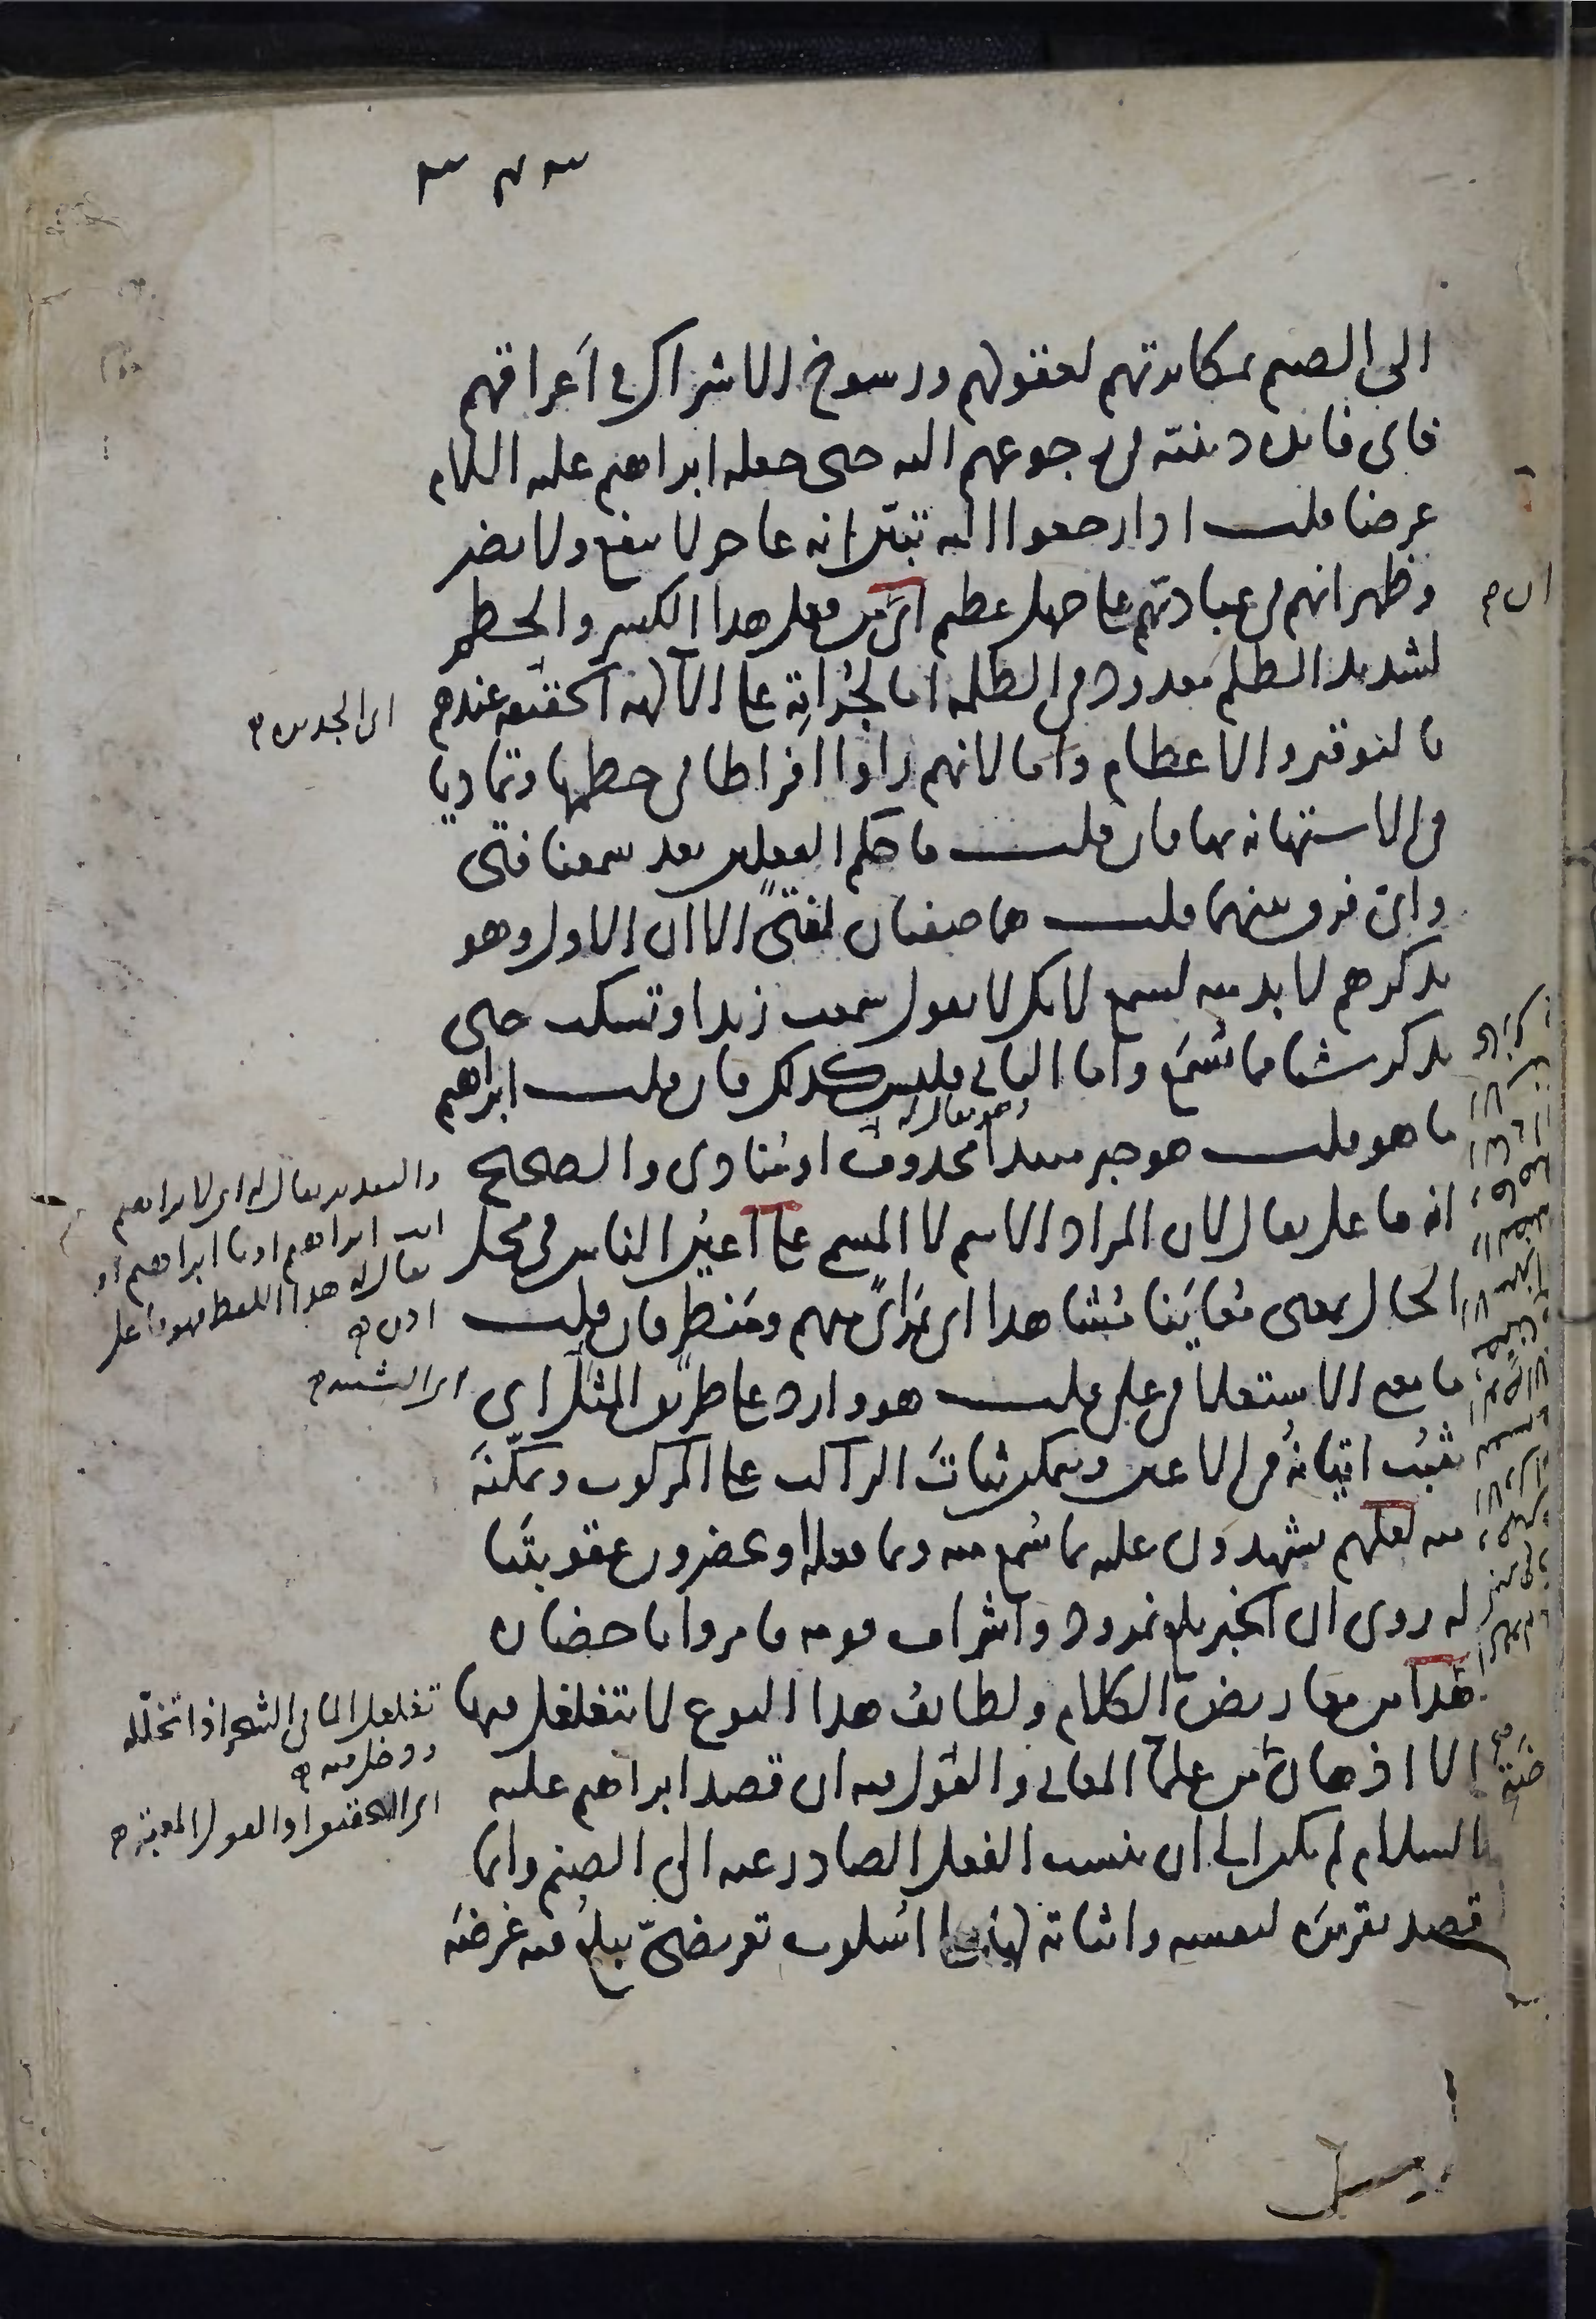 ٣٨٣
الى الصنم بمكابرتهم لعقولهم ورسوخ الاشراك في أعراقهم
فاى فايدة دينيّة فى رجوعهم اليه حتى جعله ابراهيم عليه السلام
غرضا قلت اذا رجعوا اليه تبيّن انه عاجز لا ينفع ولا يضر
وظهر انهم فى عبادتهم على جهل عظيم اى من فعل هذا الكسر والحطم
لشديد الظلم معدود فى الظلمة اما لجُرأتِه على الآلهة الحقيقة عندهم
اى الجديرة
بالتوقير والاعظام واما لانهم راوا افراطا فى حطمها وتماديا
فى الاستهانة بها فان قلت ما حكم الفعلين بعد سمعنا فتى
واى فرق بينهما قلت هما صفتان لفتًى الا ان الاول وهو
يذكرهم لا بد منه لسمع لانك لا تقول سمعت زيدا وتسكت حتى
يذكر شيا مما يُسْمَع واما الثانى فليس كذلك فان قلت ابراهيم
ما هو قلت هو خبر مبتدأ محذوف او مُنادى والصحيح
انه فاعل يقال لان المراد الاسم لا المسمى على أعيُن الناس فى محل
الحال بمعنى مُعاينًا مُشاهدا اى بمَرْاًى منهم ومَنظرٍ فان قلت
ما معنى الاستعلا فى على قلت هو وارد على طريق المثل اى
يثبُت اتيانُهُ فى الاعين ويتمكن ثباتَ الراكب على المركوب وتمكّنَه
منه لعلهم يشهدون عليه بما سُمع منه وبما فعله او يحضرون عقوبتَنا
له روى ان الخبر بلغ نمرود واشراف قومه فامروا باحضاره
هذا من معاريض الكلام ولطائف هذا النوع لا يتغلغل فيها
الا اذهان من علمآ المعانى والقول فيه ان قصد ابراهيم عليه
السلام لم يكن الى ان ينسب الفعل الصادر عنه الى الصنم وانما
قصد تقريرَه لنفسه واثباته لها على اسلوب تعريضىّ يبلغُ فيه غرضَه
والتقدير يقال له اى لابراهيم
انت ابراهيم او يا ابراهيم او
يقال له هذا اللفظ فهو فاعل
تغلغل الما فى الشجر اذا تخلّله
ودخل فيه